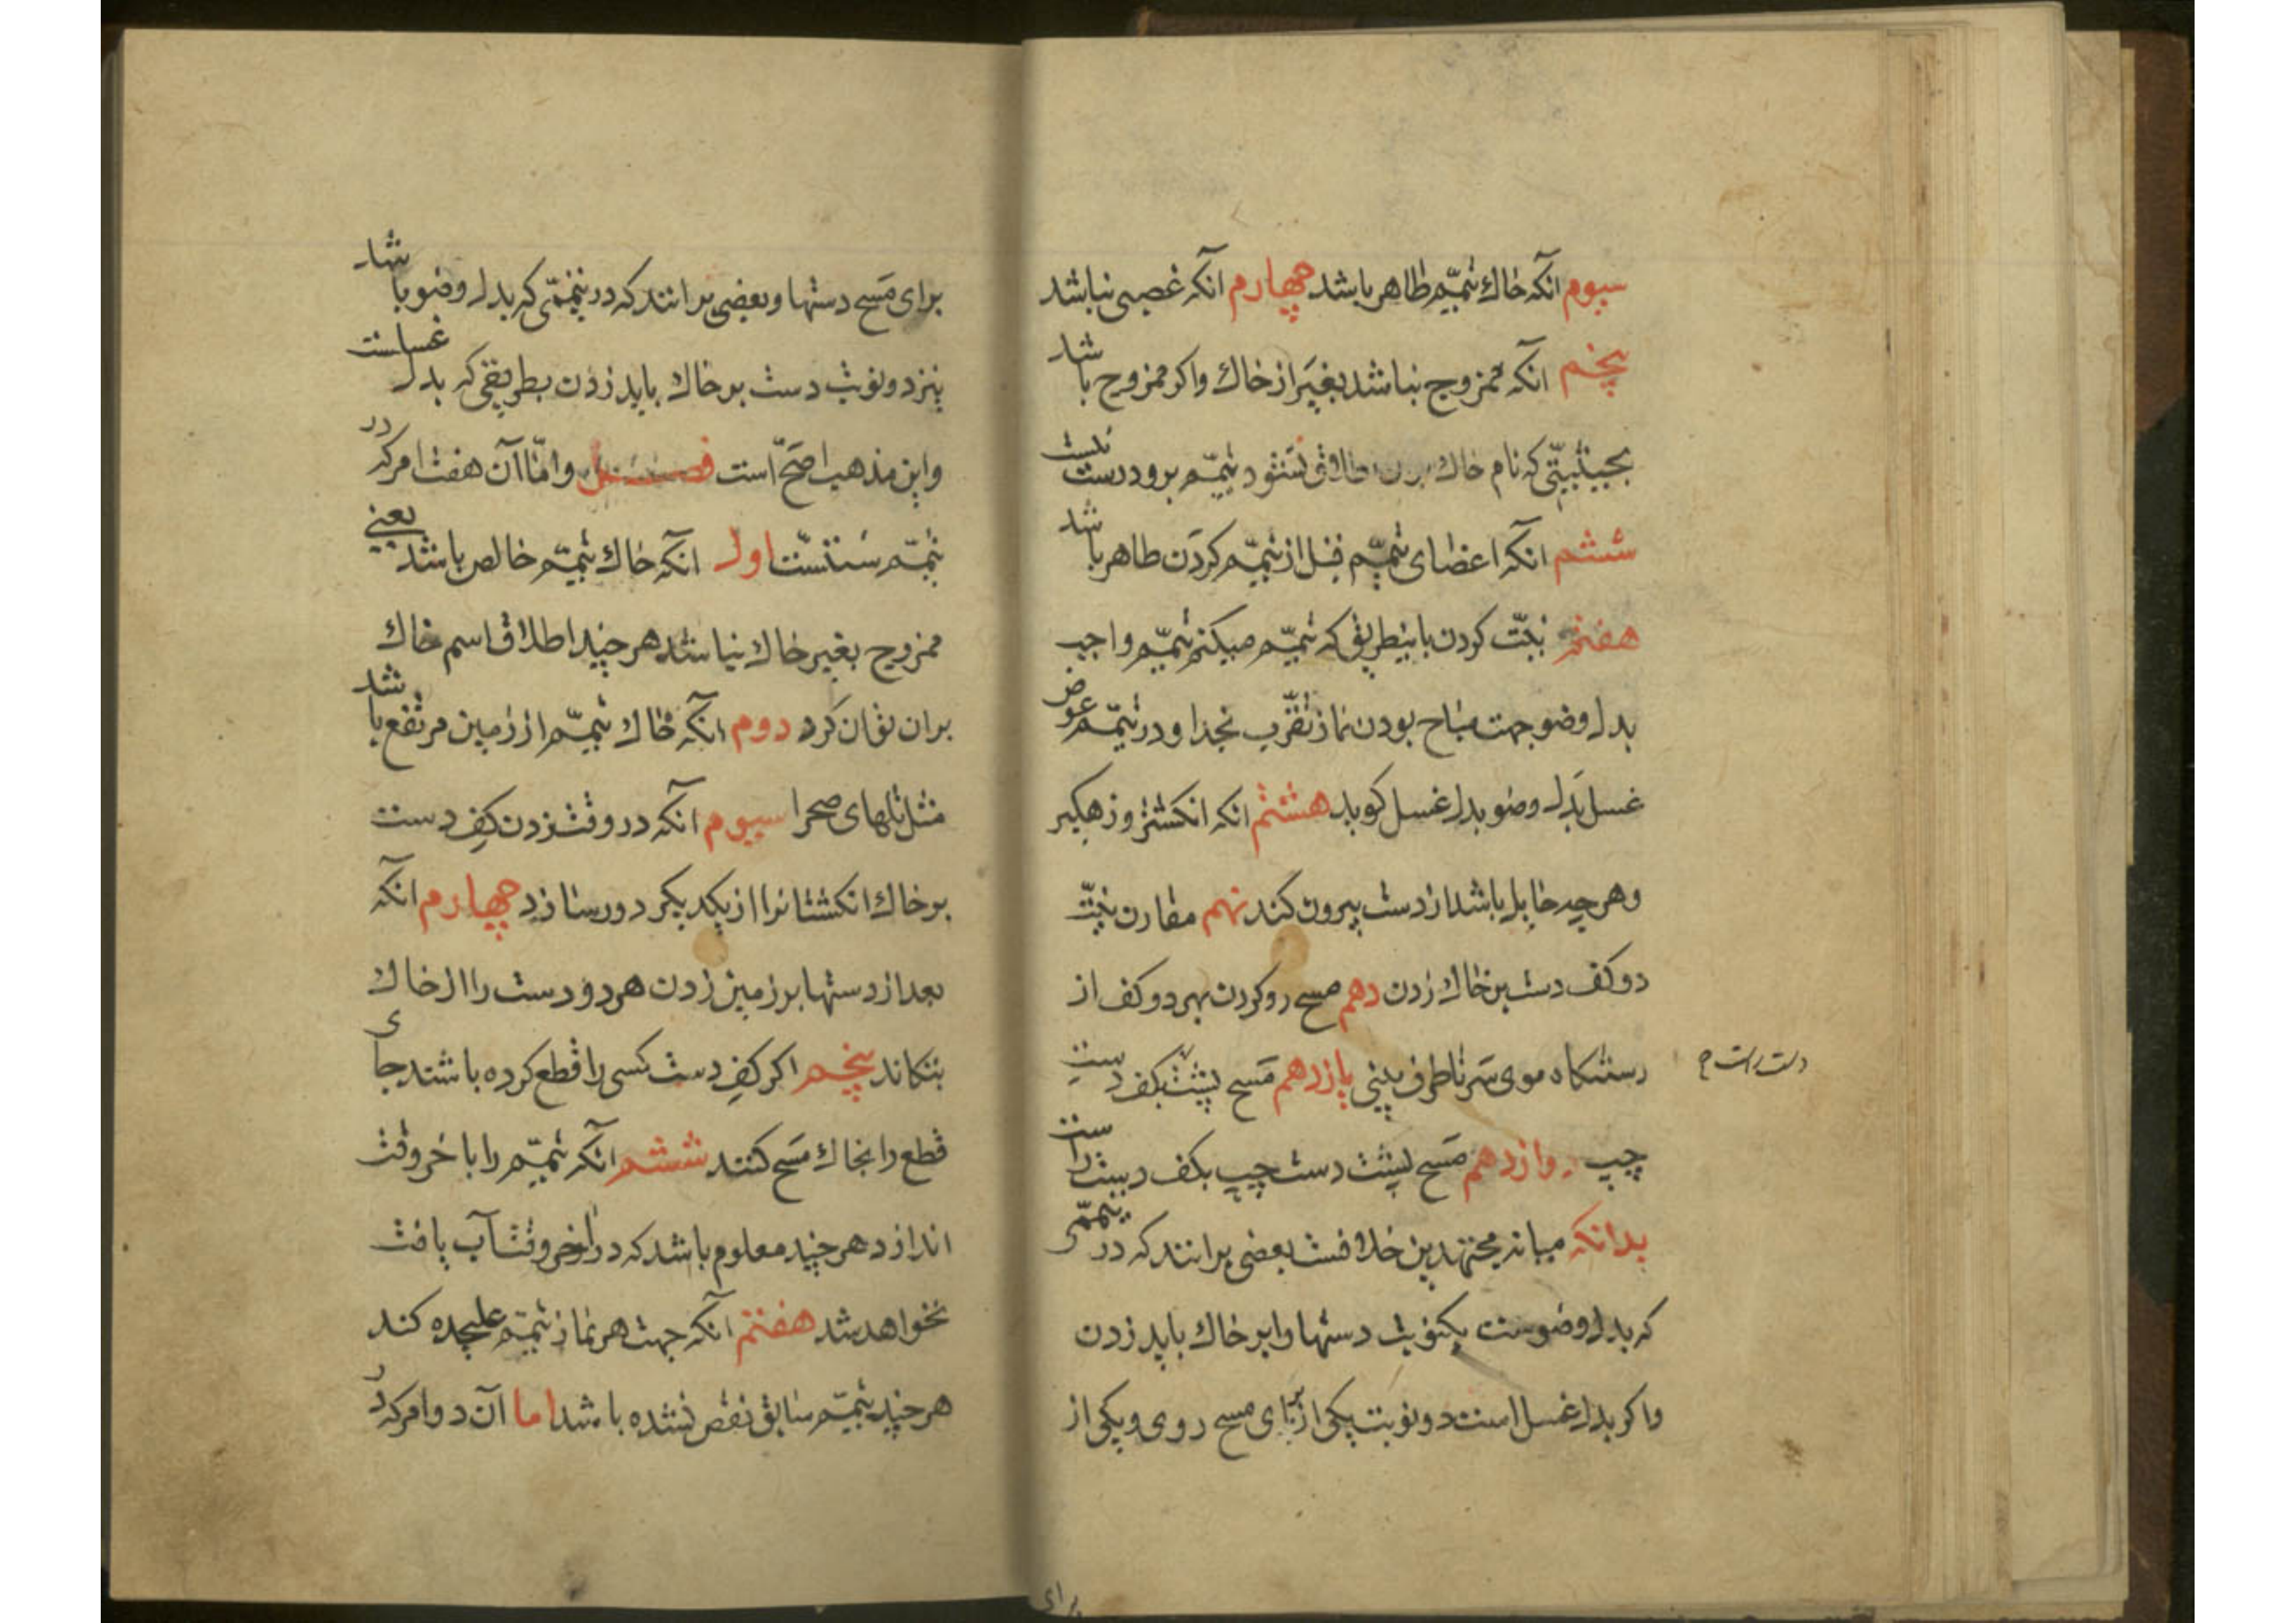 سیوم آنکه خاك تیمّم طاهر باشد چهارم آنکه غصبی نباشد
پنجم آنکه ممزوج نباشد بغیر از خاك واکر ممزوج باشد
بحیثیتی که نام خاك نشود تیمّم برو درست نیست
ششم آنکه اعضای تیمّم قبل از تیمّم کردن طاهر باشد
هفتم نیّت کردن باینطریق که تیمّم میکنم تیمّم واجب
بدل وضو جهت مباح بودن نماز تقرّب بخدا و در تیمّم عوض
غسل بَدل وضو بدل غسل کوید هشتم انکه انکشتر و زهکیر
و هر چه حایل باشد از دست بیرون کند نهم مقارن نیّت
دو کف دست بر خاك زدن دهم مسح رو کردن بهر دو کف از
رستنکاه موی سَر تا طرف بینی یازدهم مَسح پشت بکف دست
دست راست
چپ دوازدهم مَسح پشت دست چپ بکف دست راست
بدانکه میانه مجتهدین خلافست بعضی برانند که در تیممّی
که بدل وضوست یکنوبت دستها را بر خاك باید زدن
واکر بدل غسل است دو نوبت یکی از برای مسح روی و یکی از
برای
برای مَسح دستها و بعضی برانند که در تیممّی که بدل وضو باشد
نیز دو نوبت دست بر خاك باید زدن بطریقی که بدل غسلست
واین مذهب اصَحّ است فصل وامّا آن هفت امر که در
تیمّم سُنتسّت اول آنکه خاك تیمّم خالص باشد یعنی
ممزوج بغیر خاك نباشد هر چند اطلاق اسم خاك
بران توان کرد دوم آنکه خاك تیمّم از زمین مرتفع باشد
مثل تلهای صحرا سیوم آنکه در وقت زدن کفِ دست
بر خاك انکشتانرا از یکدیکر دور سازد چهارم آنکه
بعد از دستها بر زمین زدن هر دو دست را از خاك
بتکاند پنجم اکر کفِ دست کسی را قطع کرده باشند جای
قطع را بخاك مَسح کنند ششم آنکه تیمّم را باخر وقت
اندازد هر چند معلوم باشد که در آخر وقت آب یافت
نخواهد شد هفتم آنکه جهت هر نماز تیمّم علیحده کند
هر چند تیمّم سابق نقض نشده باشد اما آن دو امر که در